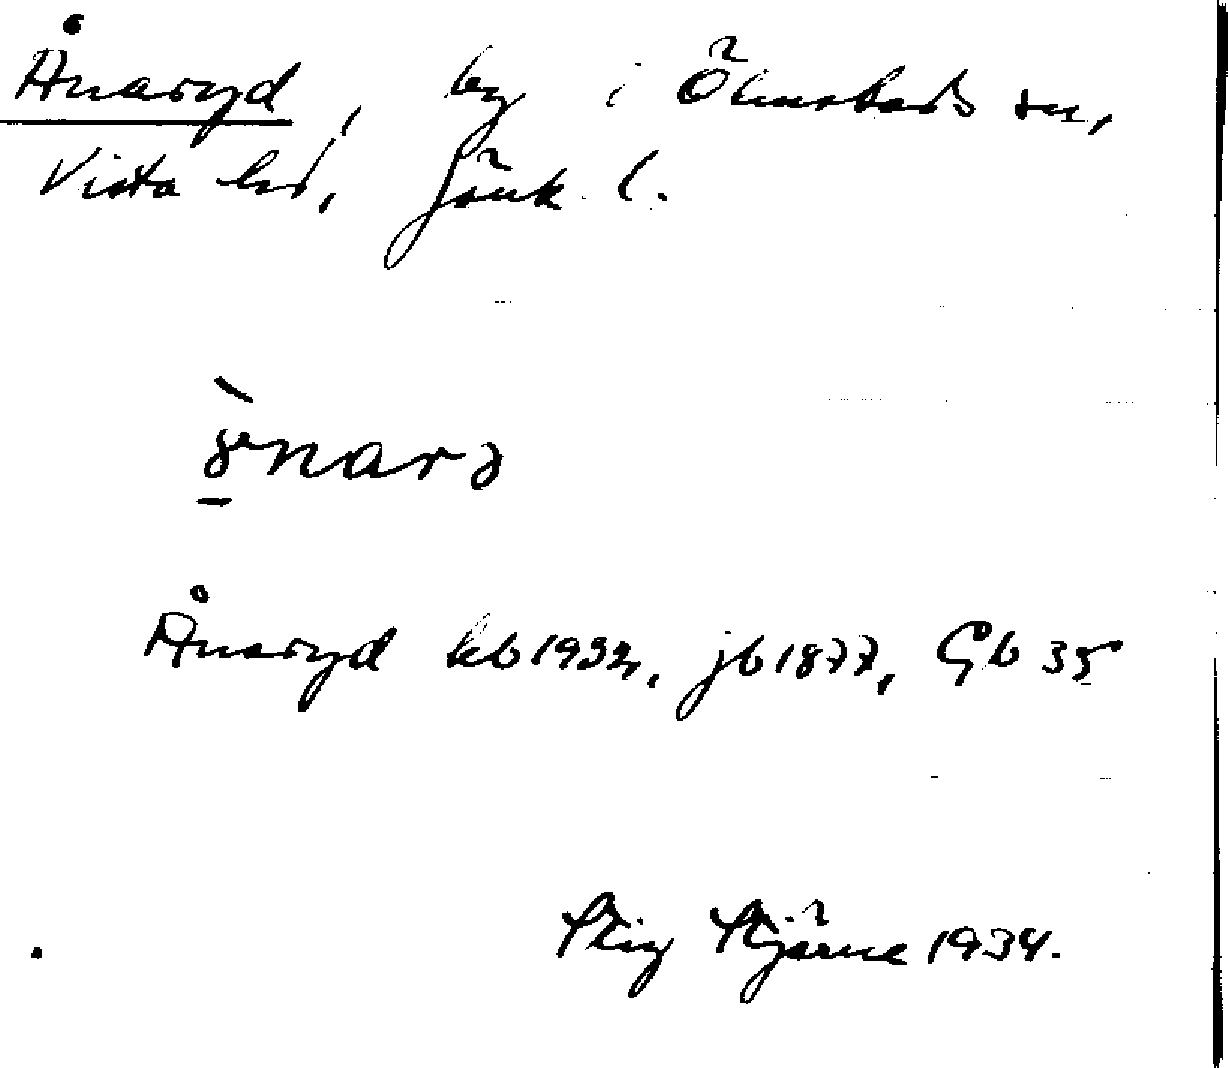 Ånaryd, by i Ölmstads sn,
Vista hd, Jönk. l.
Ånaryd kb 1932, jb 1877, Gb 35
Stig Stjärne 1934.